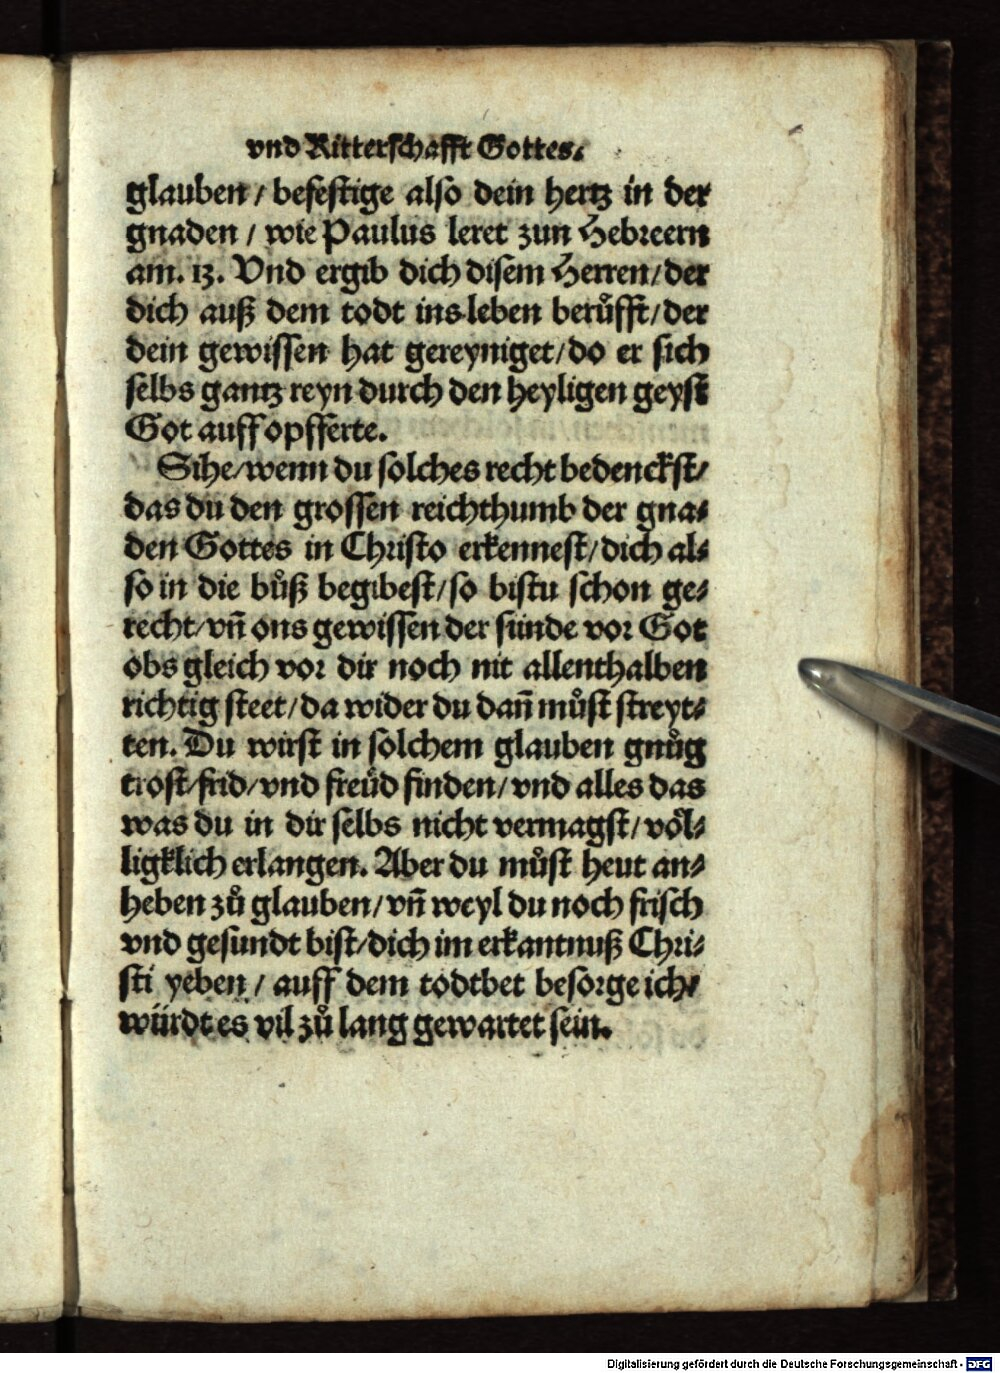 vnd Ritterschafft Gottes.
glauben / befestige also dein hertz in der
gnaden / wie Paulus leret zun Hebreern
am. 13. Vnd ergib dich disem Herren / der
dich auß dem todt ins leben berůfft / der
dein gewissen hat gereyniget / do er sich
selbs gantz reyn durch den heyligen geyst
Got auff opfferte.
Sihe / wenn du solches recht bedenckst /
das du den grossen reichthumb der gna⸗
den Gottes in Christo erkennest / dich al⸗
so in die bůß begibest / so bistu schon ge⸗
recht / vn̄ ons gewissen der sünde vor Got
obs gleich vor dir noch nit allenthalben
richtig steet / da wider du dan̄ můst streyt⸗
ten. Du wirst in solchem glauben gnůg
trost / frid / vnd freüd finden / vnd alles das
was du in dir selbs nicht vermagst / völ⸗
ligklich erlangen. Aber du můst heut an⸗
heben zů glauben / vn̄ weyl du noch frisch
vnd gesundt bist / dich im erkantnuß Chri⸗
sti yeben / auff dem todtbet besorge ich /
würdt es vil zů lang gewartet sein.
Digitalisierung gefördert durch die Deutsche Forschungsgemeinschaft - DFG